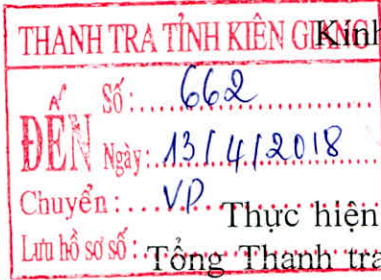 THANH TRA TỈNH KIÊN GIANG Kính
ĐẾN
Số: 662
Ngày: 13/4/2018
Chuyển: VP
Lưu hồ sơ số:
Thực hiện
Tổng Thanh tra